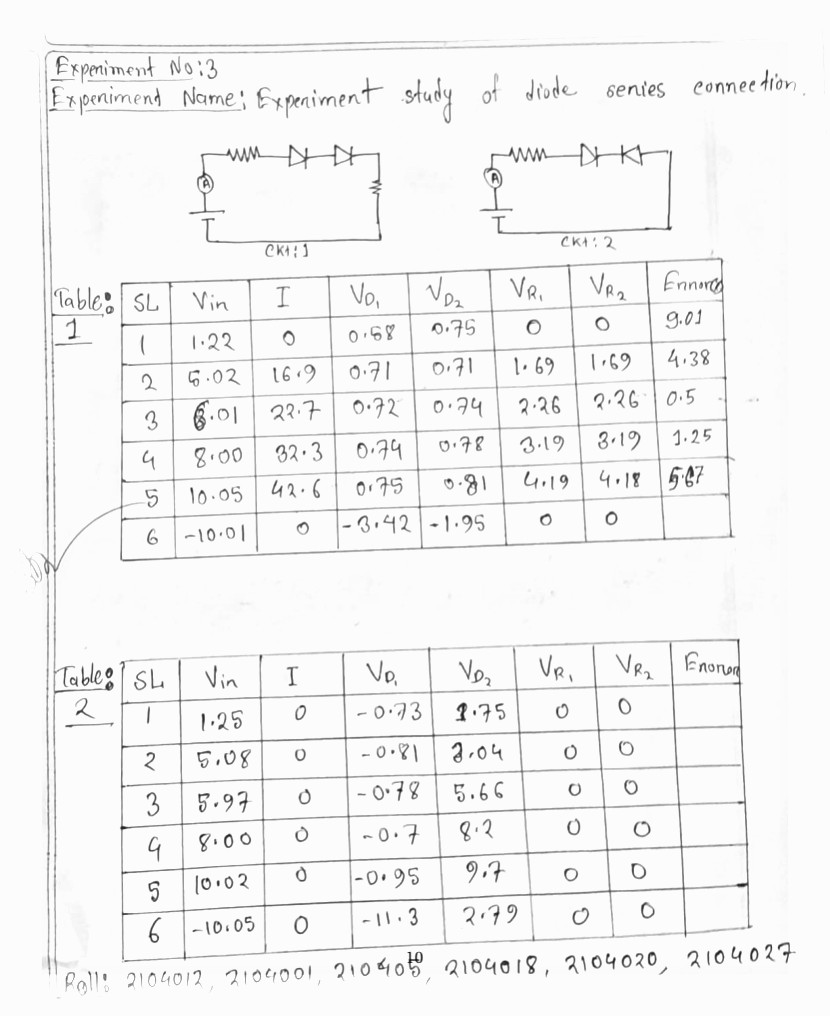 Experiment No:3
Experimend Name: Experiment study of diode series connection.
A
A
CKt:1
CKt:2
Table: 1
SL Vin I VD1 VD2 VR1 VR2 Error
1 1.22 0 0.58 0.75 0 0 9.01
2 5.02 16.9 0.71 0.71 1.69 1.69 4.38
3 6.01 22.7 0.72 0.74 2.26 2.26 0.5
4 8.00 32.3 0.74 0.78 3.19 3.19 1.25
5 10.05 42.6 0.75 0.81 4.19 4.18
6 -10.01 0 -3.42 -1.95 0 0
Table: 2
SL Vin I VD1 VD2 VR1 VR2 Error
1 1.25 0 -0.73 1.75 0 0
2 5.08 0 -0.81 3.04 0 0
3 5.97 0 -0.78 5.66 0 0
4 8.00 0 -0.7 8.2 0 0
5 10.02 0 -0.95 9.7 0 0
6 -10.05 0 -11.3 2.79 0 0
10
Roll: 2104012, 2104001, 2104018, 2104020, 2104027